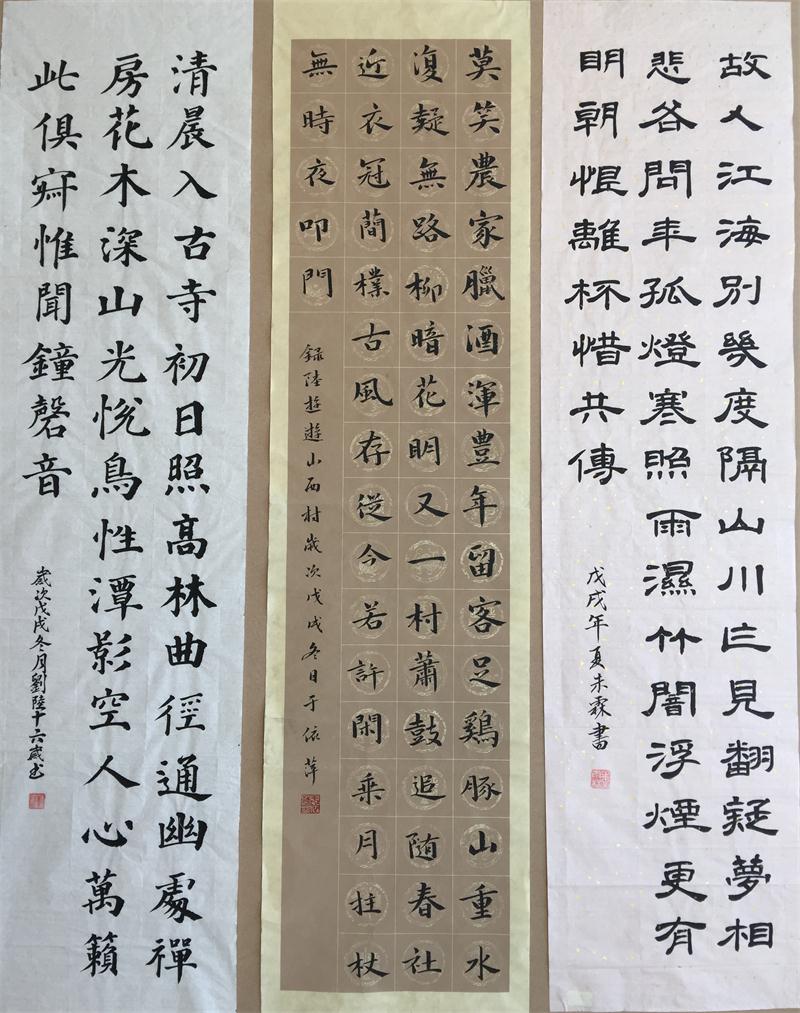 故人江海別幾度隔山川乍見翻疑夢相
悲各問年孤燈寒照雨濕竹闇浮煙更有
明朝恨離杯惜共傳
戊戌年夏朱霖書
莫笑農家臘酒渾豐年留客足鷄豚山重水
復疑無路柳暗花明又一村蕭鼓追随春社
近衣冠簡樸古風存從今若許閑乘月拄杖
無時夜叩門
録陸游遊山西村歲次戊戌冬日于依萍
清晨入古寺初日照高林曲徑通幽處禪
房花木深山光悅鳥性潭影空人心萬籟
此俱寂惟聞鐘磬音
歲次戊戌冬月劉陸十六歲书